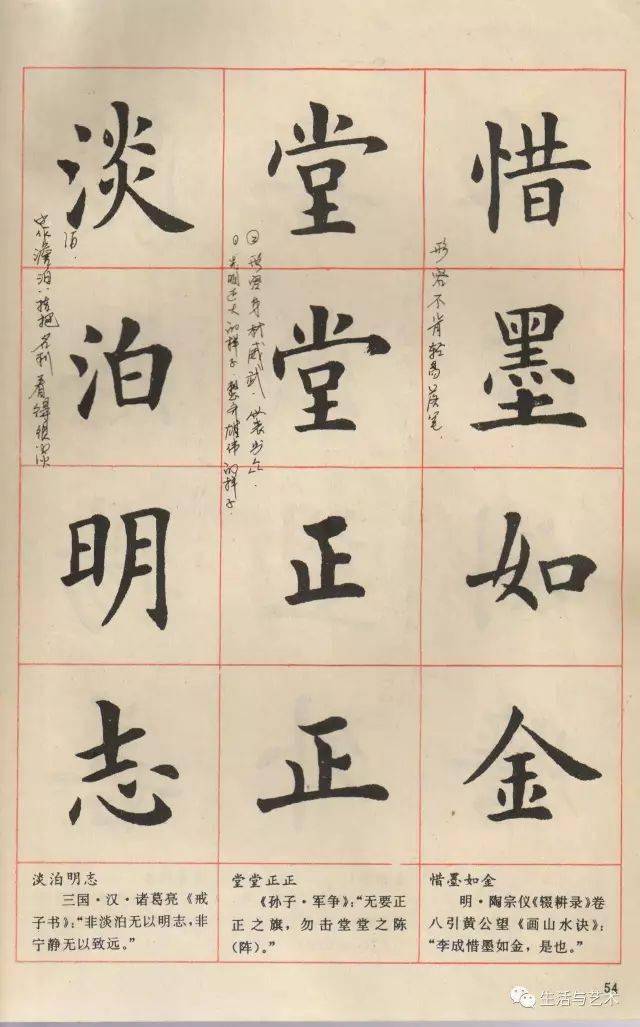 惜墨如金
堂堂正正
淡泊明志
形容不肯轻易落笔.
②形容身材威武,仪表出众.
①光明正大的样子.整齐雄伟的样子.
泊.
也作澹泊:指把名利看得很淡
淡泊明志
三国·汉·诸葛亮《戒
子书》:“非淡泊无以明志,非
宁静无以致远。”
堂堂正正
《孙子·军争》:“无要正
正之旗,勿击堂堂之陈
(阵)。”
惜墨如金
明·陶宗仪《辍耕录》卷
八引黄公望《画山水诀》:
“李成惜墨如金,是也。”
54
生活与艺术